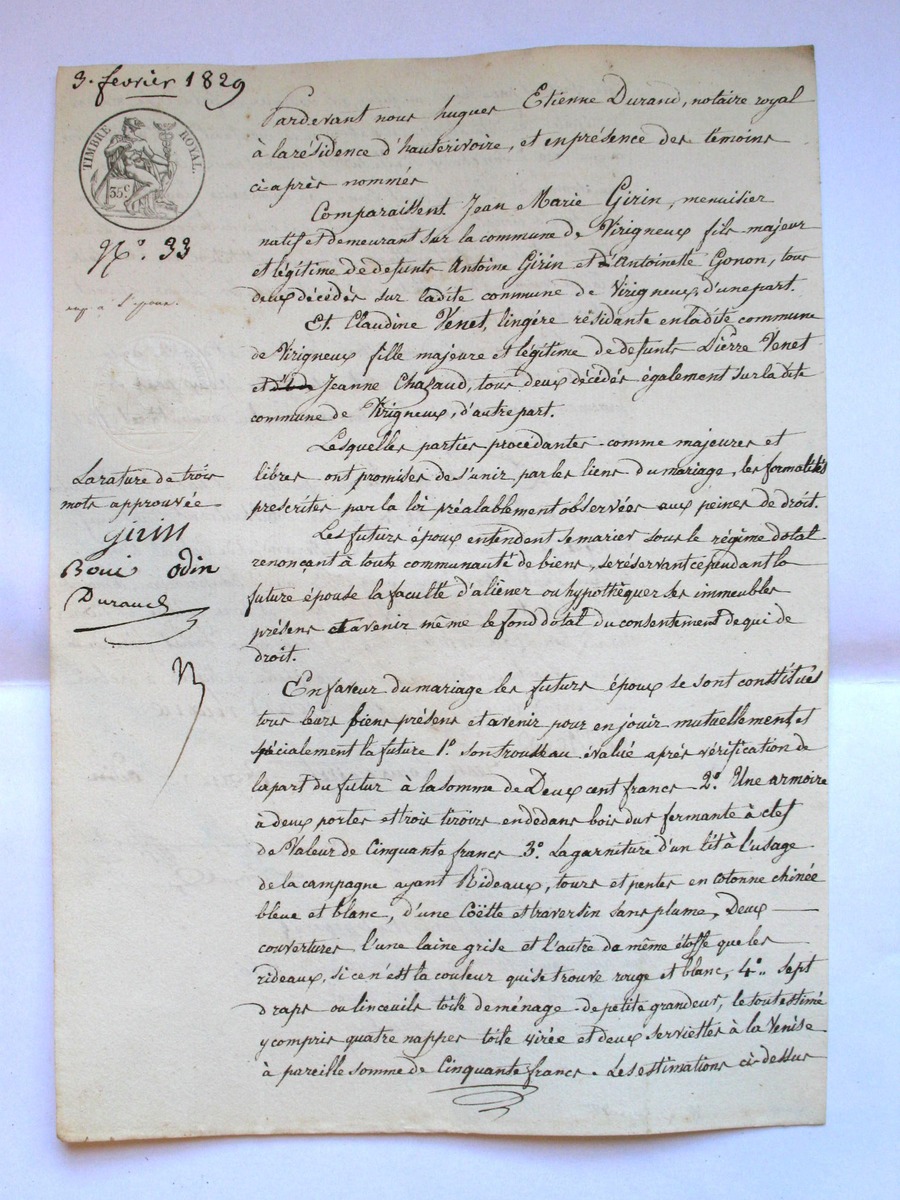 3. fevrier 1829
TIMBRE ROYAL.
35 c
N.° 33
La rature de trois
mots approuvée
Girin
odin
Durand
Pardevant nous hugues Etienne Durand, notaire royal
à la résidence d'hauterivoire, et en présence des témoins
ci après nommés
Comparaissent Jean Marie Girin, menuisier
natif et demeurant sur la commune de Virigneux fils majeur
et légitime de defunts Antoine Girin et d'Antoinette Gonon, tous
deux décédés sur ladite commune de Virigneux, d'une part.
Et Claudine Venet, lingére résidante en ladite commune
de Virigneux fille majeure et légitime de defunts Pierre Venet
et Jeanne Chazaud, tous deux décédés également sur ladite
commune de Virigneux, d'autre part.
Lesquelles parties procédantes comme majeures et
libres ont promises de s'unir par les liens du mariage, les formalités
prescrites par la loi préalablement observées aux peines de droit.
Les futurs époux entendent se marier sous le régime dotal
renonçant à toute communauté de biens, se réservant cependant la
future épouse la faculté d'aliéner ou hypothéquer ses immeubles
présens et avenir même le fond dotal du consentement de qui de
droit.
En faveur du mariage les futurs époux se sont constitués
tous leurs biens présens et avenir pour en jouir mutuellement, et
spécialement la future 1.° son trousseau évalué après vérification de
la part du futur à la somme de Deux cent francs 2.° Une armoire
à deux portes et trois tiroirs en dedans bois dur fermante à clef
de Valeur de Cinquante francs 3.° La garniture d'un lit à l'usage
de la campagne ayant Rideaux, tours et pentes en cotonne chinée
bleue et blanc, d'une Coëtte et traversin sans plume, Deux
couvertures l'une laine grise et l'autre de même étoffe que les
rideaux, si ce n'est la couleur qui se trouve rouge et blanc, 4.° Sept
draps ou linceuils toile de ménage de petite grandeur, le tout estimé
y compris quatre nappes toile virée et deux serviettes à la Venise
à pareille somme de Cinquante francs. Les estimations ci-dessus